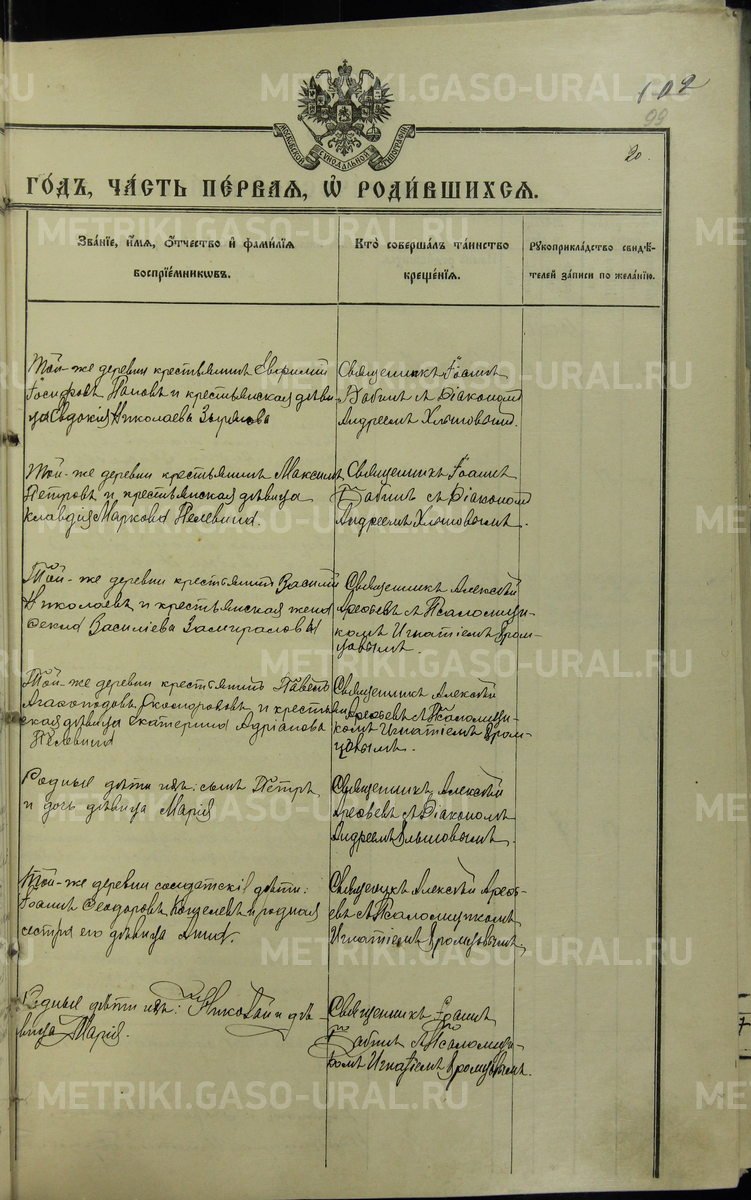 METRIKI.GASO-URAL.RU
102
99
20.
МОСКОВСКОЙ СѴНОДАЛЬНОЙ ТИПОГРАФІИ
ГО́ДЪ, ЧА́СТЬ ПЕ́РВАЯ, Ѽ РОДИ́ВШИХСЯ.
Зва́нїе, и́мя, о́тчество и҆ фами́лїя
воспрїе́мникѡвъ.
Кто̀ соверша́лъ та́инство
креще́нїя.
Рꙋкоприкла́дство свидѣ́-
телей за́писи по жела́нїю.
Той-же деревни крестьянинъ
Іосифовъ Поповъ и крестьянская дѣви-
ца Евдокія Николаева Зырянова
Священникъ Іоаннъ
Бабинъ съ Діакономъ
Андреемъ
Той-же деревни крестьянинъ Максимъ
Петровъ и крестьянская дѣвица
Клавдія Маркова Пелевина.
Священникъ Іоаннъ
Бабинъ съ Діакономъ
Андреемъ
Той-же деревни крестьянинъ Василій
Николаевъ и крестьянская жена
Василіева Замиралова
Священникъ Алексѣй
Арефьевъ съ Псаломщи-
комъ Игнатіемъ
Той-же деревни крестьянинъ Павелъ
Агафоподовъ и крестьян-
ская дѣвица Екатерина Адріанова
Пелевина
Священникъ Алексѣй
Арефьевъ съ Псаломщи-
комъ Игнатіемъ
Родные дѣти ихъ: сынъ Петръ,
и дочь дѣвица Марія
Священникъ Алексѣй
Арефьевъ съ Діакономъ
Андреемъ
Той-же деревни солдатскіе дѣти:
Іоаннъ Феодоровъ Кошелевъ и родная
сестра его дѣвица Анна.
Священникъ Алексѣй Арефь-
евъ съ Псаломщикомъ
Игнатіемъ
Родные дѣти ихъ: Николай и дѣ-
вица Марія.
Священникъ Іоаннъ
Бабинъ съ Псаломщи-
комъ Игнатіемъ